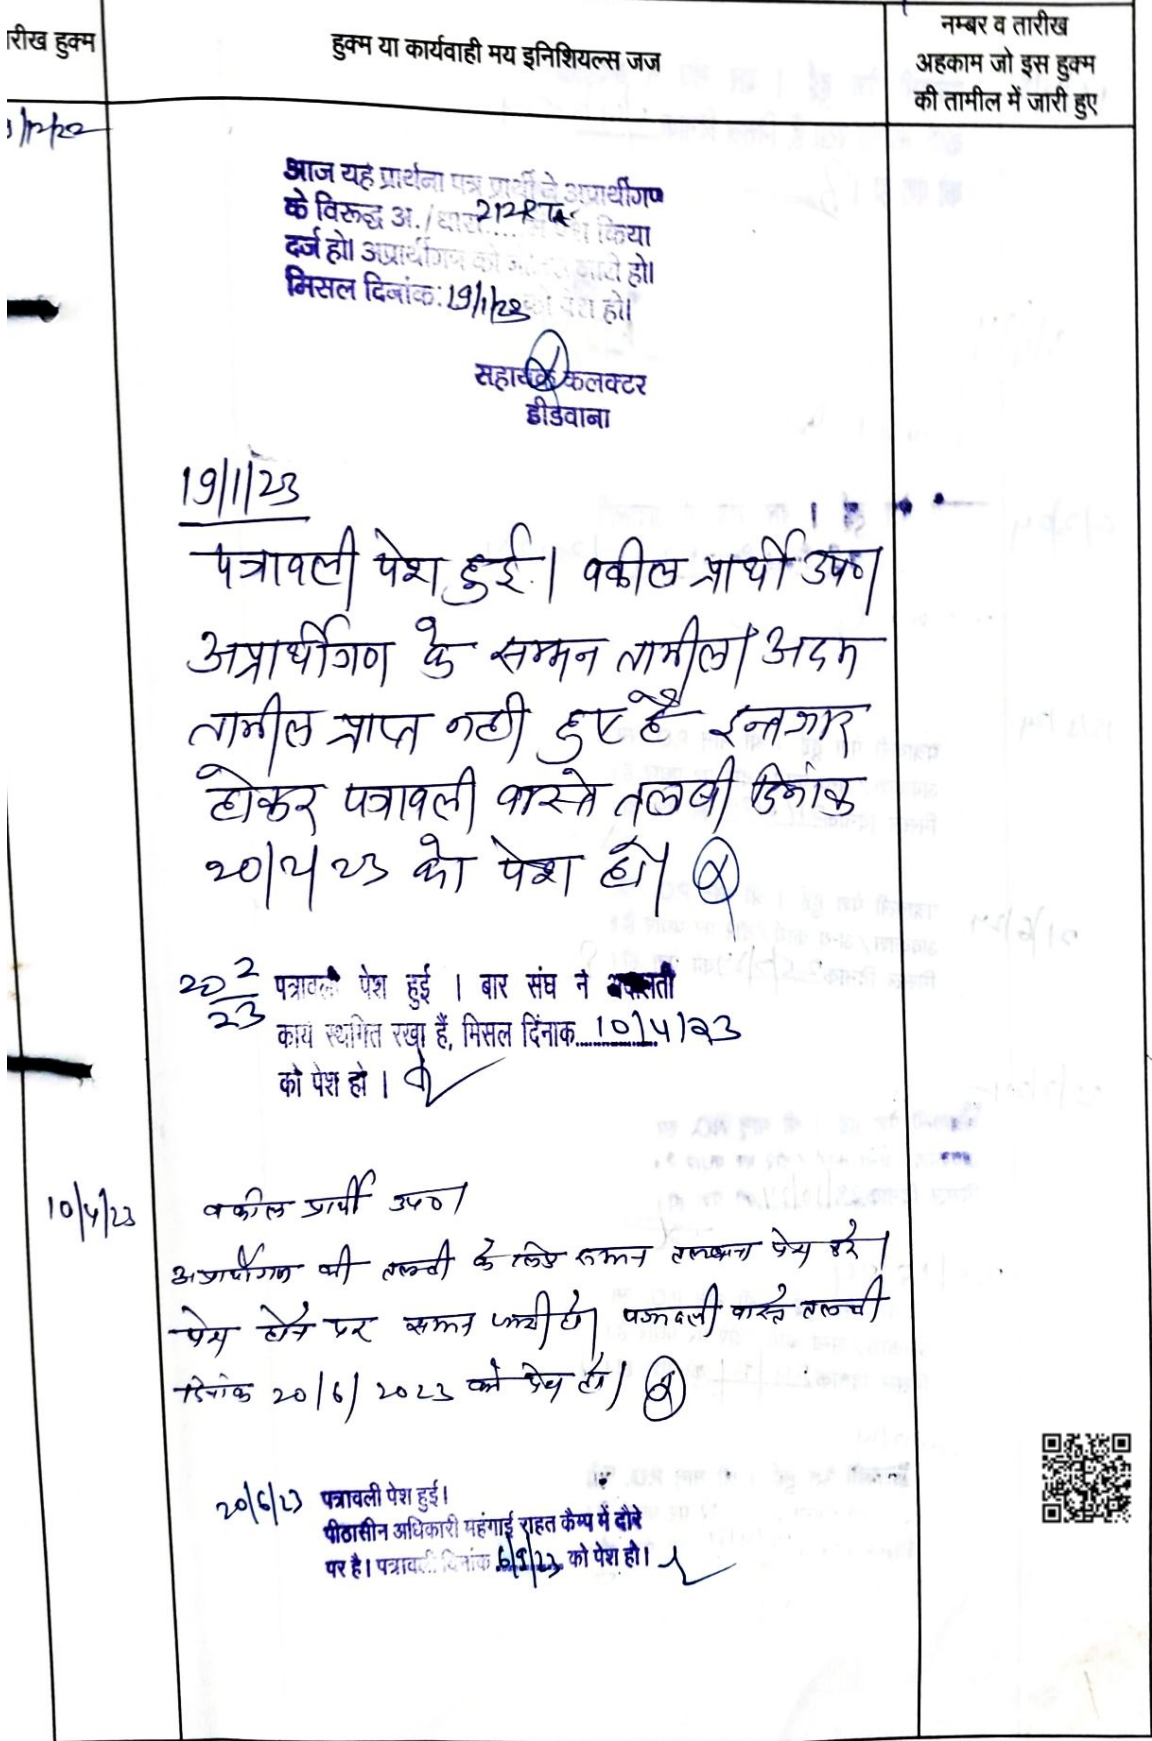 तारीख हुक्म
हुक्म या कार्यवाही मय इनिशियल्स जज
नम्बर व तारीख
अहकाम जो इस हुक्म
की तामील में जारी हुए
/12/22
आज यह प्रार्थना पत्र प्रार्थी ने अप्रार्थीगण
के विरूद्ध अ./धारा 212 RTA में पेश किया
दर्ज हो। अप्रार्थीगण को जारी हो।
मिसल दिनांक: 19/1/23 को पेश हो।
सहायक कलक्टर
डीडवाना
19/1/23
पत्रावली पेश हुई। वकील प्रार्थी उप०।
अप्रार्थीगण के सम्मन तामील/अदम
तामील प्राप्त नही हुए है इन्तजार
होकर पत्रावली वास्ते तलबी दिनांक
20/2/23 को पेश हो।
20 2/23 पत्रावली पेश हुई । बार संघ ने अदालती
कार्य स्थगित रखा हैं, मिसल दिनांक 10/4/23
को पेश हो ।
10/4/23 वकील प्रार्थी उप०।
अप्रार्थीगण की तलबी के लिए सम्मन तलबाना पेश करे।
पेश होने पर सम्मन जारी हो। पत्रावली वास्ते तलबी
दिनांक 20/6/2023 को पेश हो।
20/6/23 पत्रावली पेश हुई।
पीठासीन अधिकारी महंगाई राहत कैम्प में दौरे
पर है। पत्रावली दिनांक 6/9/23 को पेश हो।